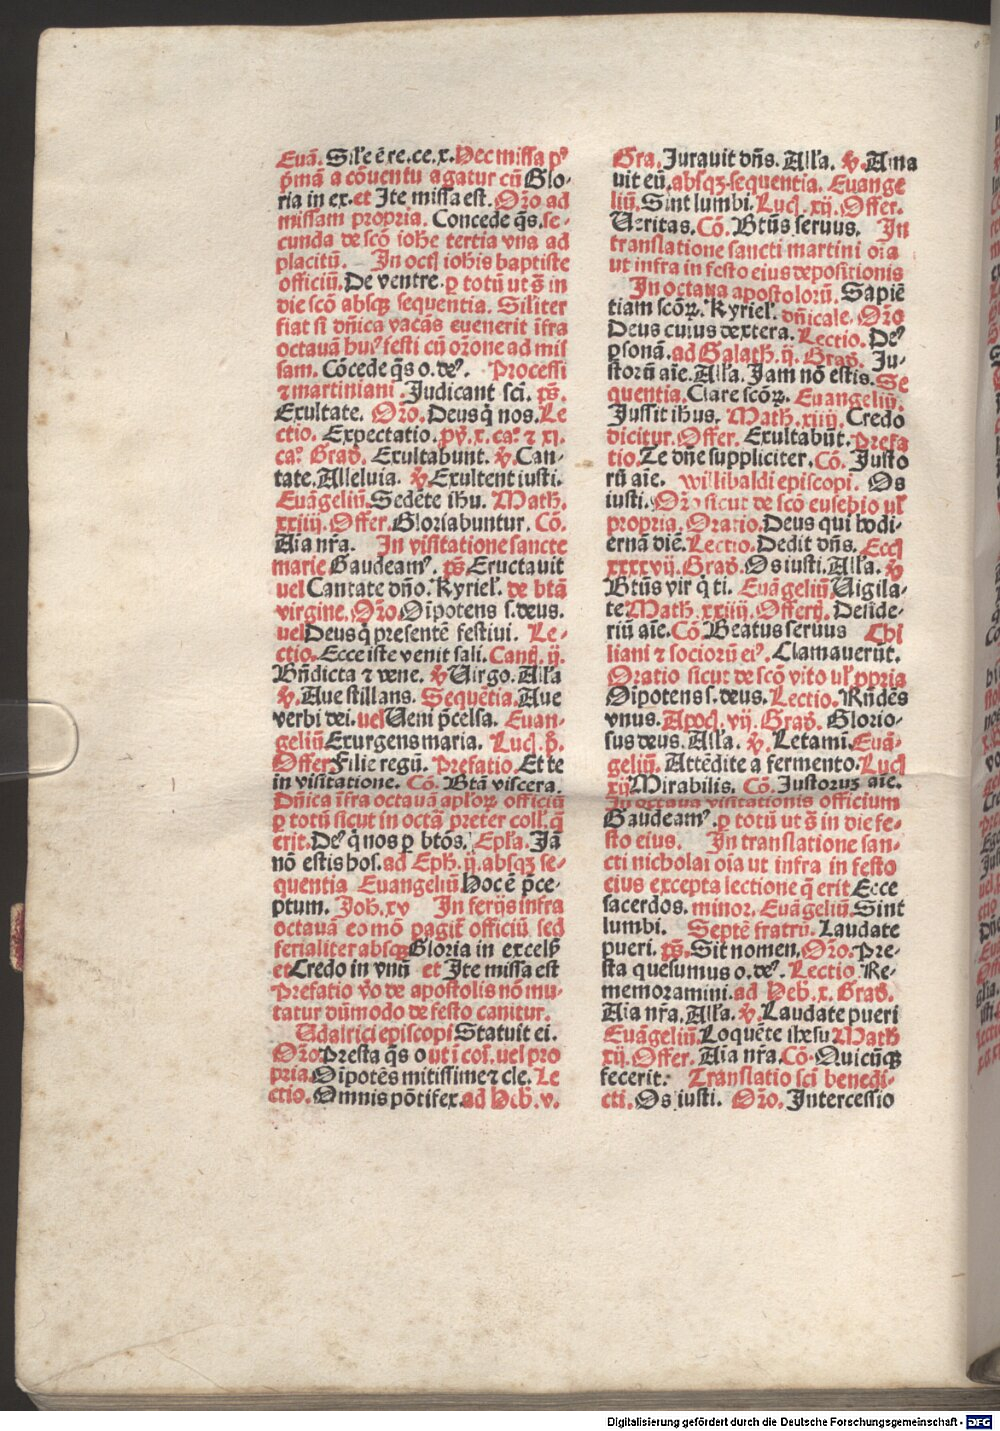 Euā. Sil'e ē re. ce. x. Hec missa p⁹
p̄mā a cōuentu agatur cū Glo-
ria in ex. et Ite missa est. Or̄o ad
missam propria. Concede q̄s. se-
cunda de scō iohe tertia vna ad
placitū. In octꝭ iohis baptiste
officiū. De ventre. p totū ut s̄ in
die scō absqꝫ sequentia. Siliter
fiat si dn̄ica vacās euenerit īfra
octauā hui⁹ festi cū or̄one ad mis
sam. Cōcede q̄s o. de⁹. Processi
⁊ martiniani. Judicant sc̄i. ps̄.
Exultate. Or̄o. Deus q̄ nos. Le
ctio. Expectatio. pv̄. x. ca⁰. ⁊ xi.
ca⁰. Grad̄. Exultabunt. ℣. Can-
tate. Alleluia. ℣ Exultent iusti.
Euāgeliū. Sedēte ihu. Math̄.
xxiiij. Offer. Gloriabuntur. Cō.
Aia nr̄a. In visitatione sancte
marie Gaudeam⁹. ps̄. Eructauit
uel Cantate dn̄o. Kyriel'. de btā
virgine. Or̄o. Oīpotens s. deus.
uel Deus q̄ presentē festiui. Le-
ctio. Ecce iste venit sali. Cant̄. ij.
Bn̄dicta ⁊ vene. ℣ Virgo. All'a
℣. Aue stillans. Sequētia. Aue
verbi dei. uel Veni p̄celsa. Euan-
geliū Exurgens maria. Lucꝭ. p̄.
Offer Filie regū. Prefatio. Et te
in visitatione. Cō. Btā viscera.
Dn̄ica īfra octauā apl'oꝝ officiū
p totū sicut in octā preter coll'. q̄
erit. De⁹ q̄ nos p btōs. Epl'a. Jā
nō estis hos. ad Eph̄. ij. absqꝫ se-
quentia Euangeliū Hoc ē p̄ce-
ptum. Joh̄. xv In ferijs infra
octauā eo mō pagit̄ officiū sed
ferialiter absqꝫ Gloria in excels̄
et Credo in vnū et Ite missa est
Prefatio v̄o de apostolis nō mu-
tatur dūmodo de festo canitur.
Udalrici episcopi Statuit ei.
Or̄o. Presta q̄s o ut ī cōi. uel pro
pria. Oīpotēs mitissime ⁊ cle. Le
ctio. Omnis pōtifex. ad Heb. v.
Gra. Jurauit dn̄s. All'a. ℣. Ama
uit eū. absqꝫ sequentia. Euange
liū. Sint lumbi. Lucꝭ. xij. Offer.
Veritas. Cō. Btūs seruus. In
translatione sancti martini oīa
ut infra in festo eius depositionis
In octaua apostolorū. Sapiē
tiam scōꝝ. Kyriel'. dn̄icale. Or̄o
Deus cuius dextera. Lectio. De⁹
psonā. ad Galath̄. ij. Grad̄. Ju-
storū aīe. All'a. Jam nō estis. Se
quentia. Clare scōꝝ. Euangeliū.
Jussit ihus. Math̄. xiiij. Credo
dicitur. Offer. Exultabūt. Prefa
tio. Te dn̄e suppliciter. Cō. Justo
rū aīe. willibaldi episcopi. Os
iusti. Or̄o sicut de scō eusebio ul'
propria. Oratio. Deus qui hodi-
ernā diē. Lectio. Dedit dn̄s. Eccꝭ
xxxxvij. Grad̄. Os iusti. All'a. ℣
Btūs vir q̄ ti. Euāgeliū Vigila-
te Math̄. xxiiij. Offert̄. Deside-
riū aīe. Cō Beatus seruus Chi
liani ⁊ sociorū ei⁹. Clamauerūt.
Oratio sicut de scō vito ul' ꝓpria
Oīpotens s. deus. Lectio. Rn̄dēs
vnus. Apocꝭ. vij. Grad̄. Glorio-
sus deus. All'a. ℣. Letami. Euā-
geliū. Attēdite a fermento. Lucꝭ
xij Mirabilis. Cō. Justoruꝫ aīe.
In octaua visitationis officium
Gaudeam⁹. p totū ut s̄ in die fe-
sto eius. In translatione san-
cti nicholai oīa ut infra in festo
eius excepta lectione q̄ erit Ecce
sacerdos. minor. Euāgeliū. Sint
lumbi. Septē fratrū. Laudate
pueri. ps̄. Sit nomen. Or̄o. Pre-
sta quesumus o. de⁹. Lectio Re-
memoramini. ad Heb. x. Grad̄.
Aia nr̄a. All'a. ℣. Laudate pueri
Euāgeliū. Loquēte ihesu Math̄
xij. Offer. Aia nr̄a. Cō. Quicūqꝫ
fecerit. Translatio sc̄i benedi-
cti. Os iusti. Or̄o. Intercessio
Digitalisierung gefördert durch die Deutsche Forschungsgemeinschaft - DFG